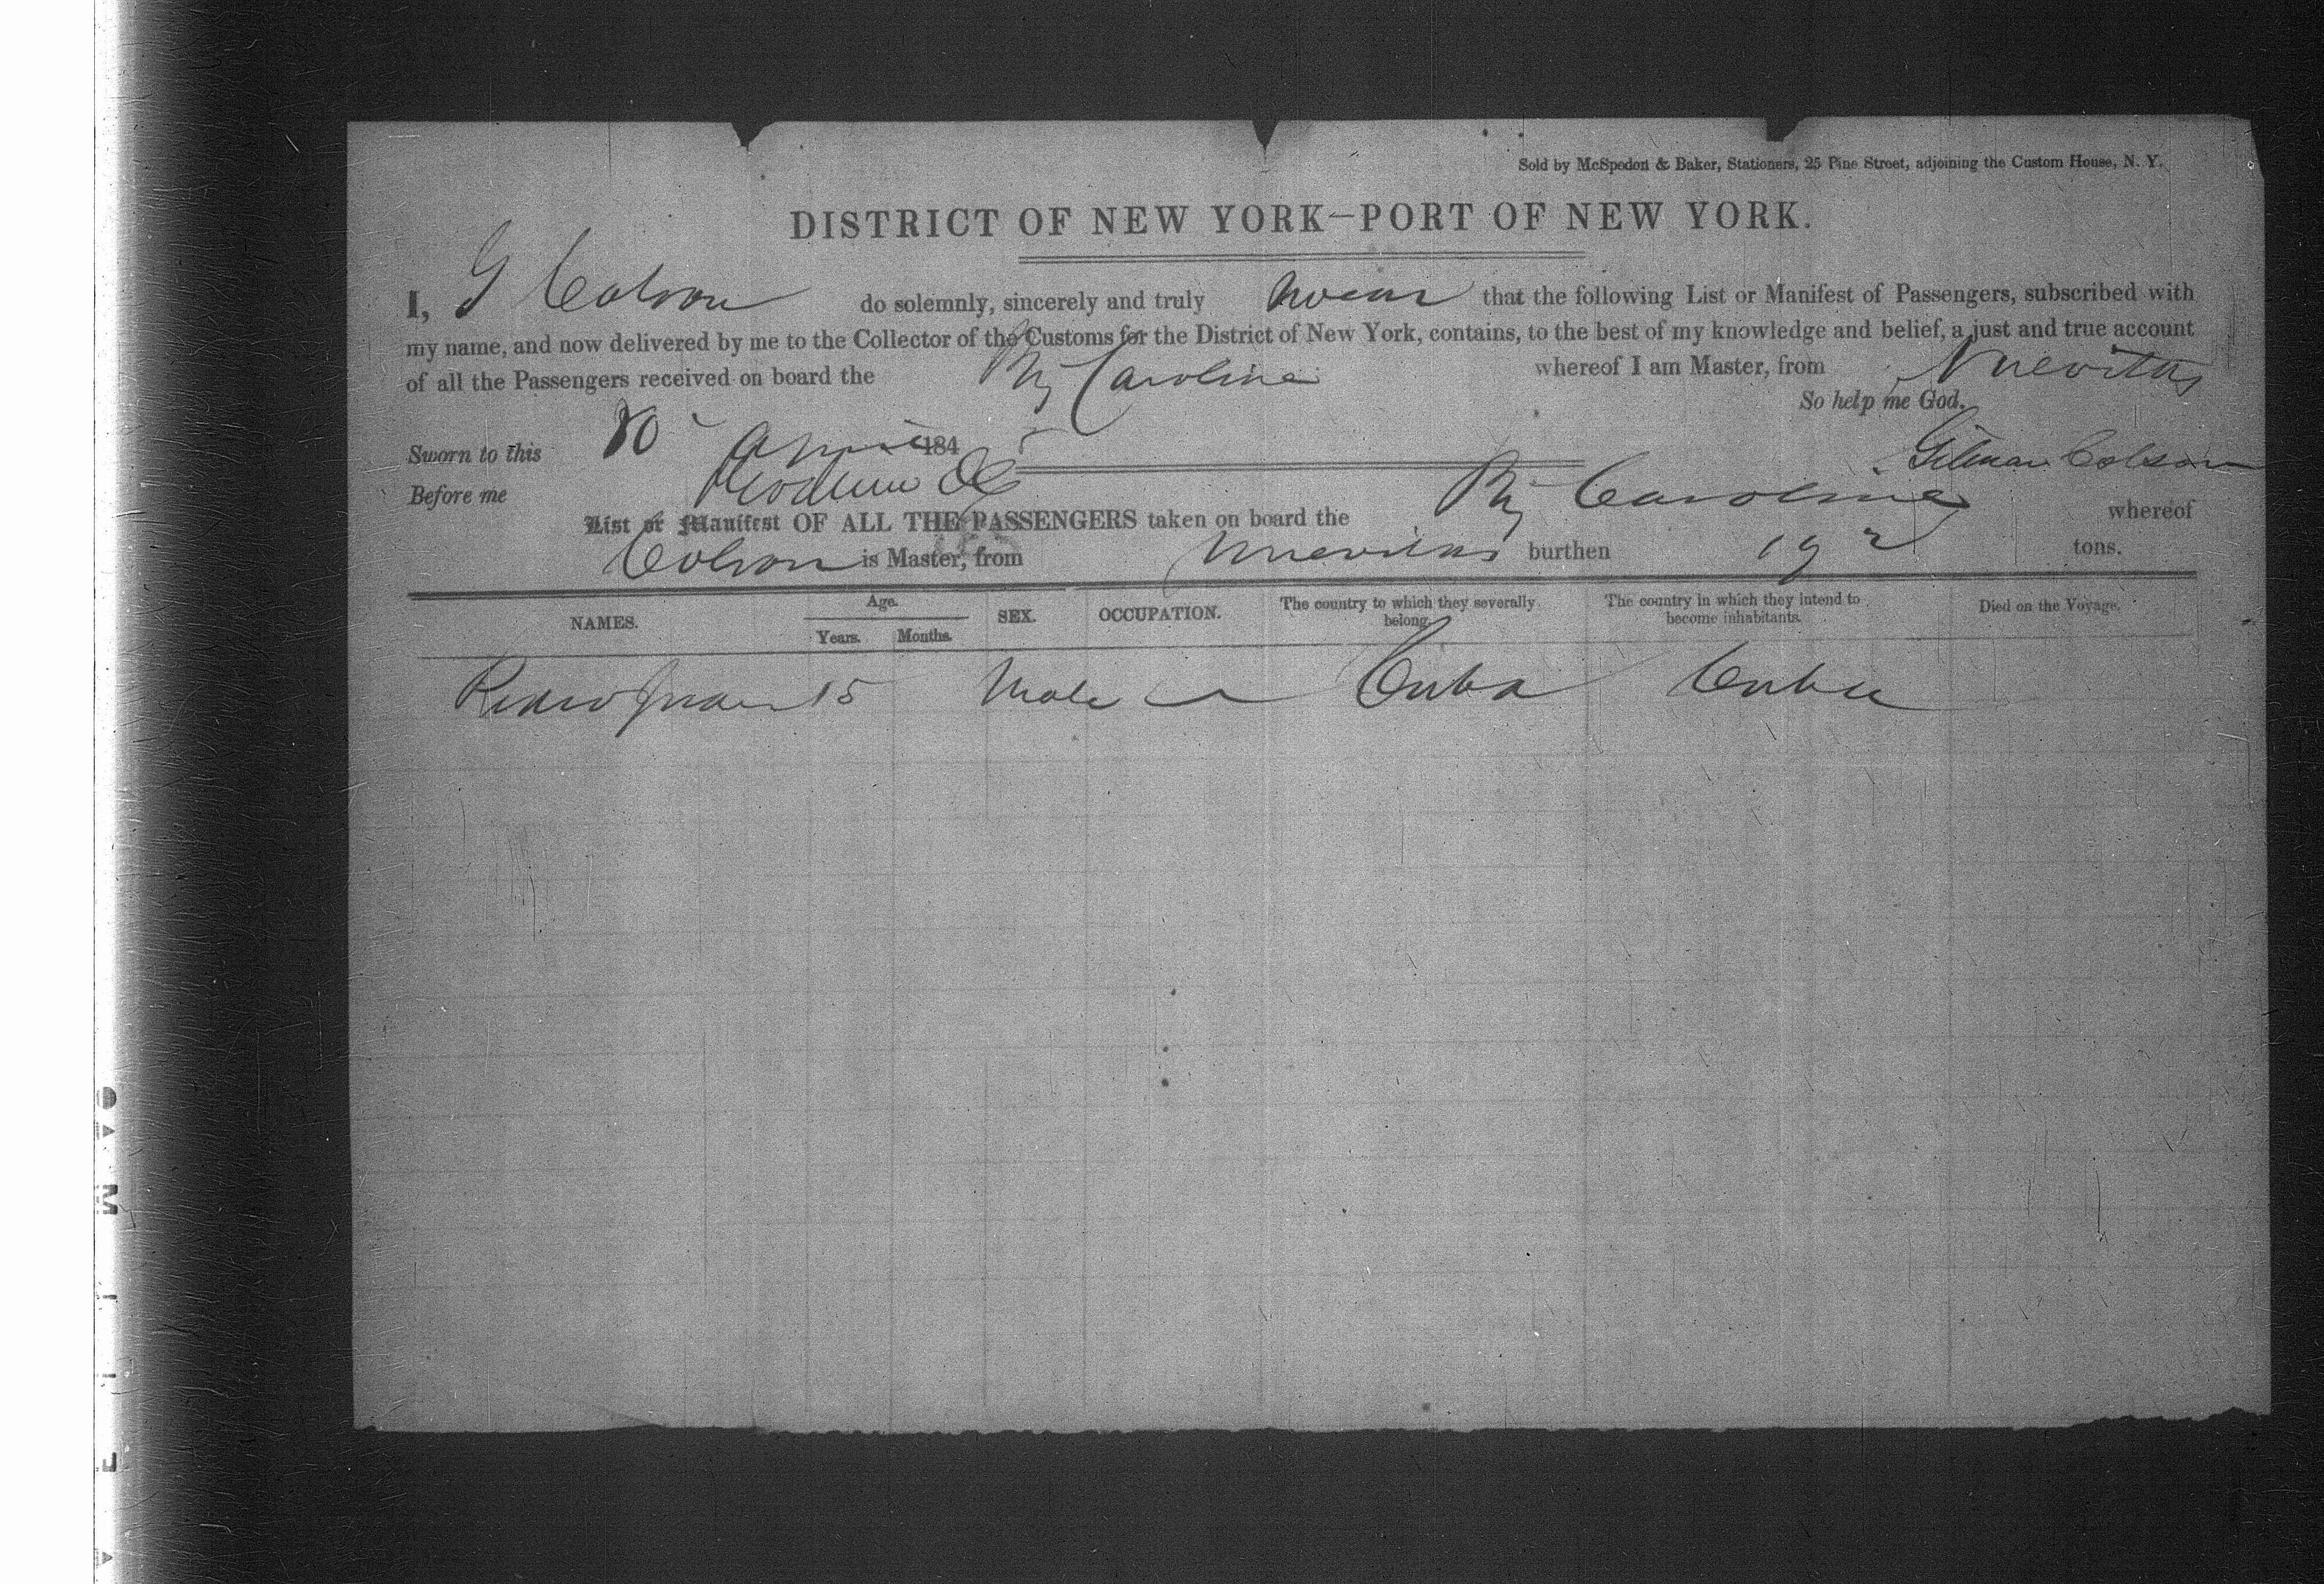 Sold by McSpedon & Baker, Stationers, 25 Pine Street, adjoining the Custom House, N. Y.
DISTRICT OF NEW YORK—PORT OF NEW YORK.
I, G Colson do solemnly, sincerely and truly swear that the following List or Manifest of Passengers, subscribed with
my name, and now delivered by me to the Collector of the Customs for the District of New York, contains, to the best of my knowledge and belief, a just and true account
of all the Passengers received on board the Brig Caroline whereof I am Master, from Nuevitas
So help me God.
Sworn to this April 184 Gilman Colson
Before me
List or Manifest OF ALL THE PASSENGERS taken on board the Brig Caroline whereof
Colson is Master, from Nuevitas burthen 192 tons.
NAMES. Age. Years. Months. SEX. OCCUPATION. The country to which they severally belong. The country in which they intend to become inhabitants. Died on the Voyage.
Pedro Juan 15 Male Cuba Cuba